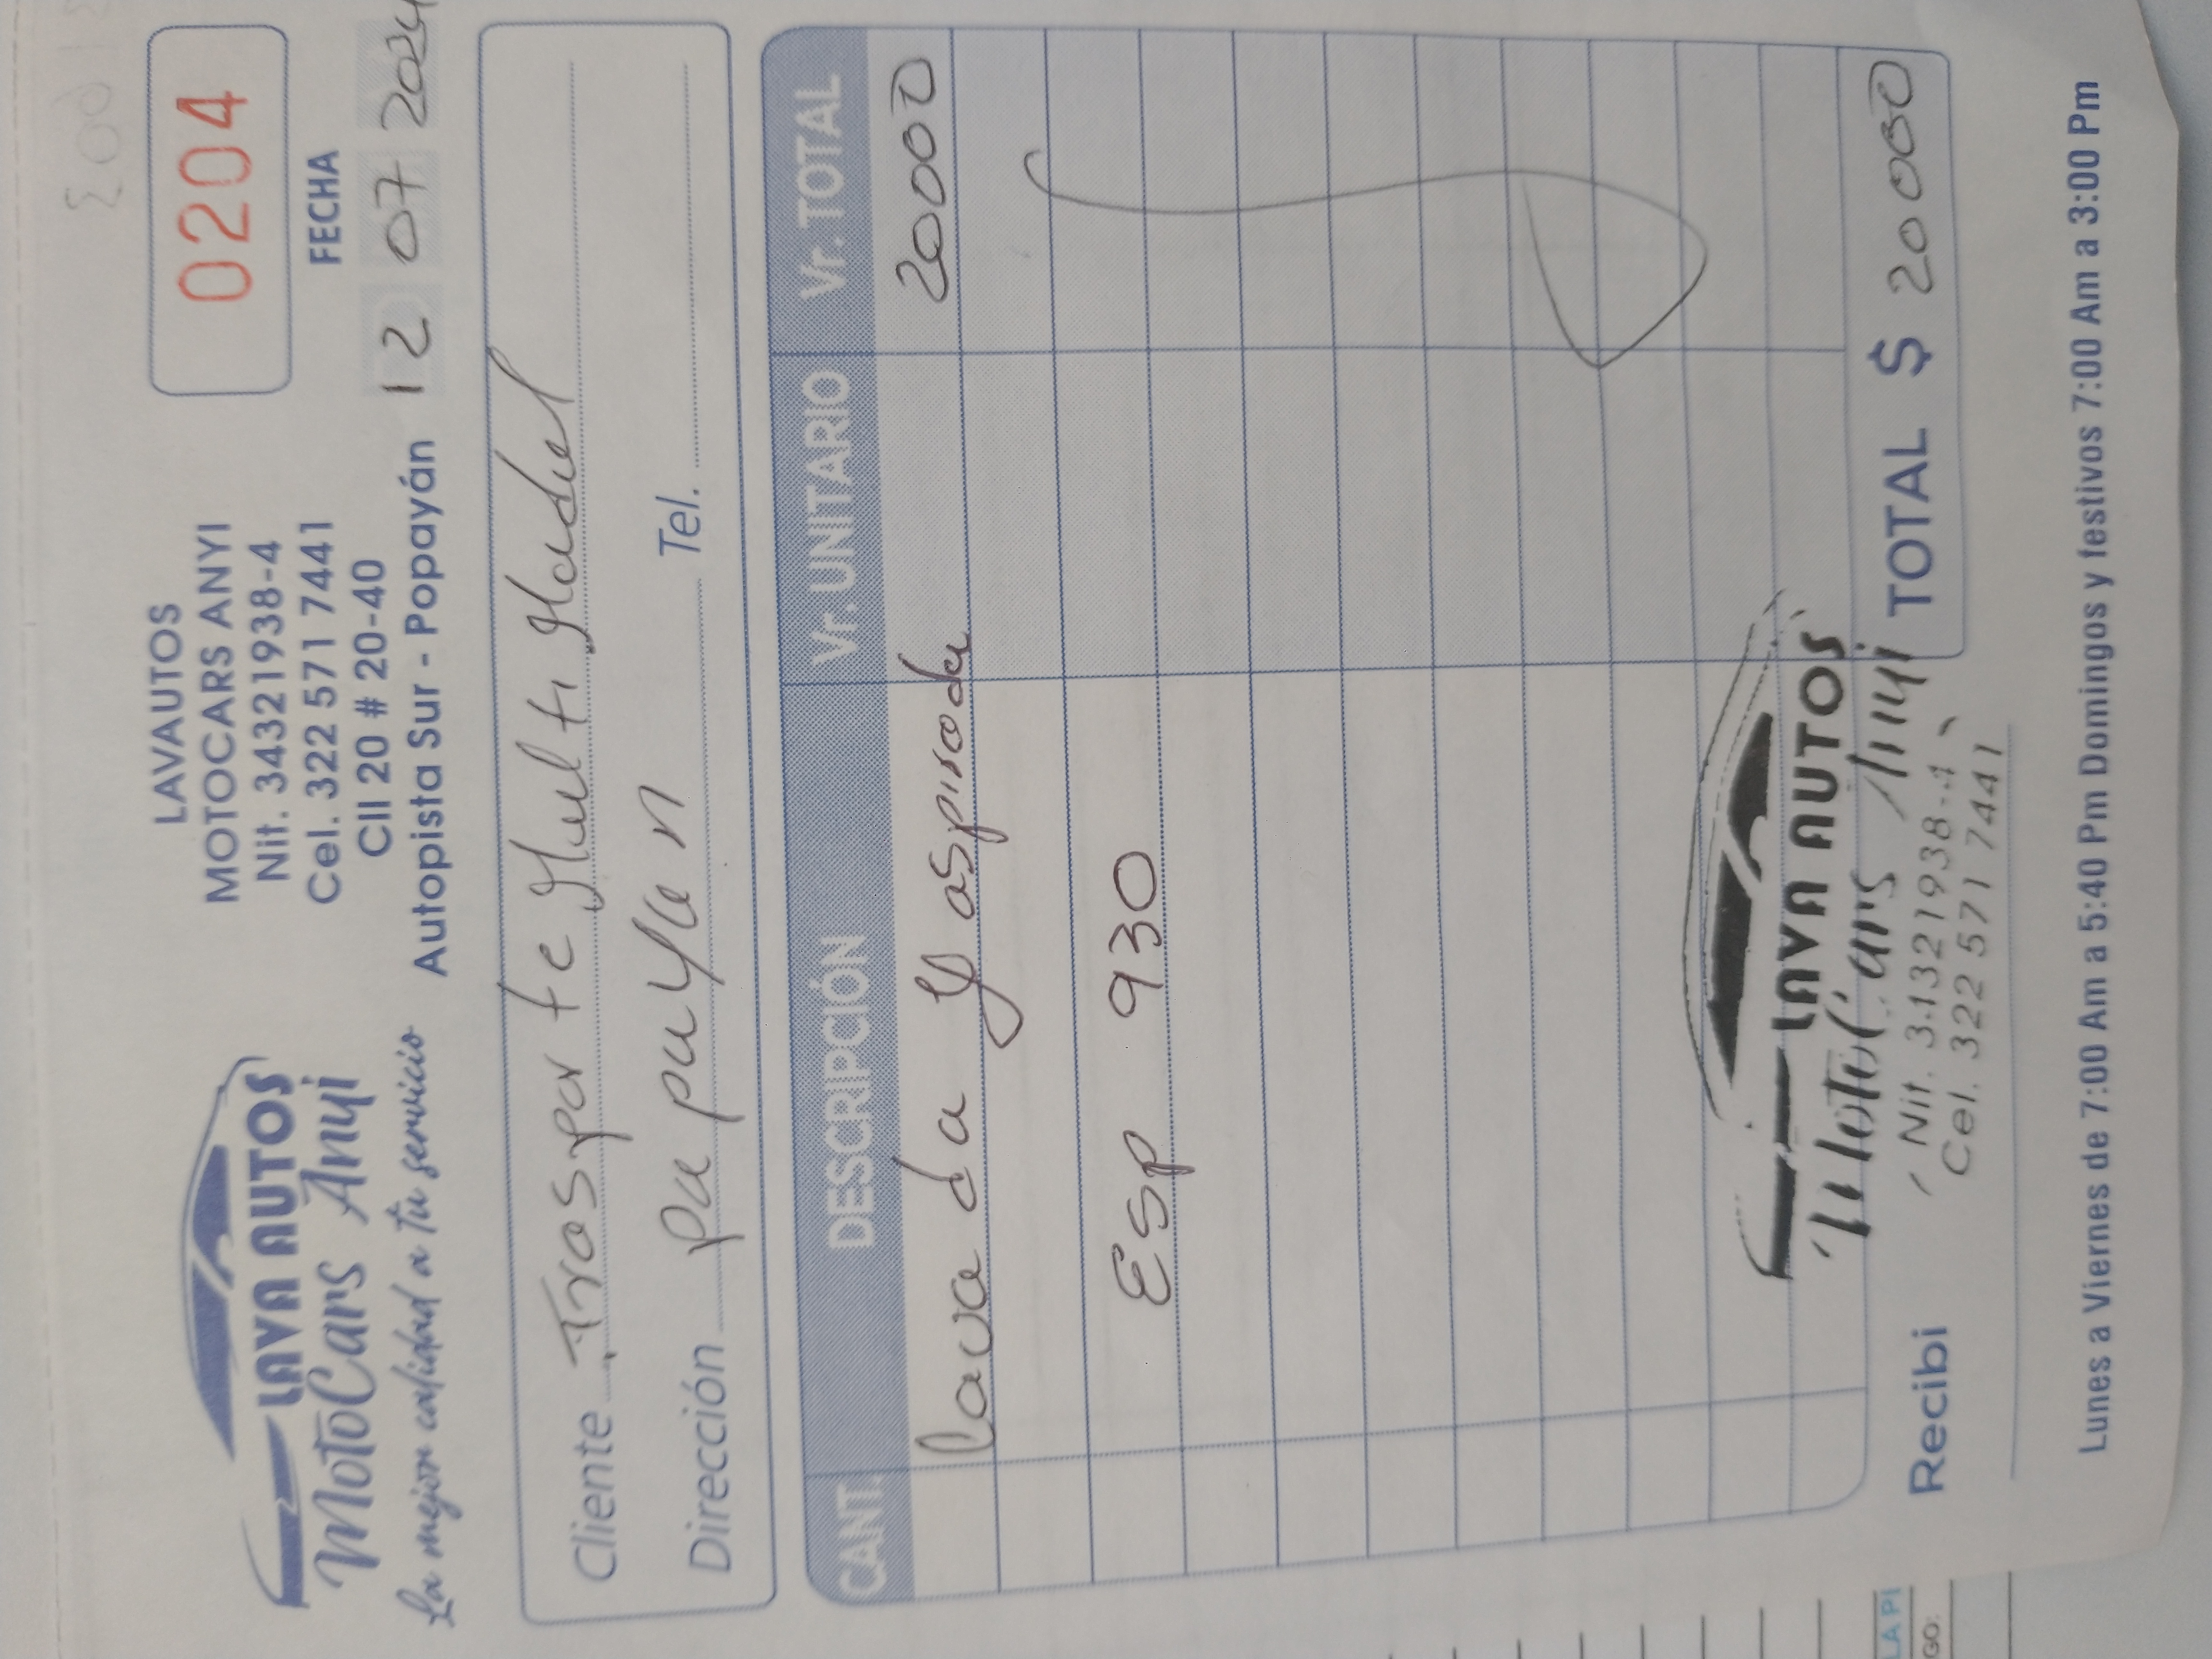 LAVA AUTOS
MotoCars Anyi
La mejor calidad a tu servicio
LAVAUTOS
MOTOCARS ANYI
Nit. 34321938-4
Cel. 322 571 7441
Cll 20 # 20-40
Autopista Sur - Popayán
0204
FECHA
12 07 2024
Cliente Trasporte Multi Modul
Dirección Pupuyan Tel.
CANT. DESCRIPCIÓN Vr. UNITARIO Vr. TOTAL
Lavada y aspirada 20000
Esp 930
LAVA AUTOS
MotoCars Anyi
Nit. 34321938-4
Cel. 322 571 7441
Recibi
TOTAL $ 20000
Lunes a Viernes de 7:00 Am a 5:40 Pm Domingos y festivos 7:00 Am a 3:00 Pm
LA PI
GO: